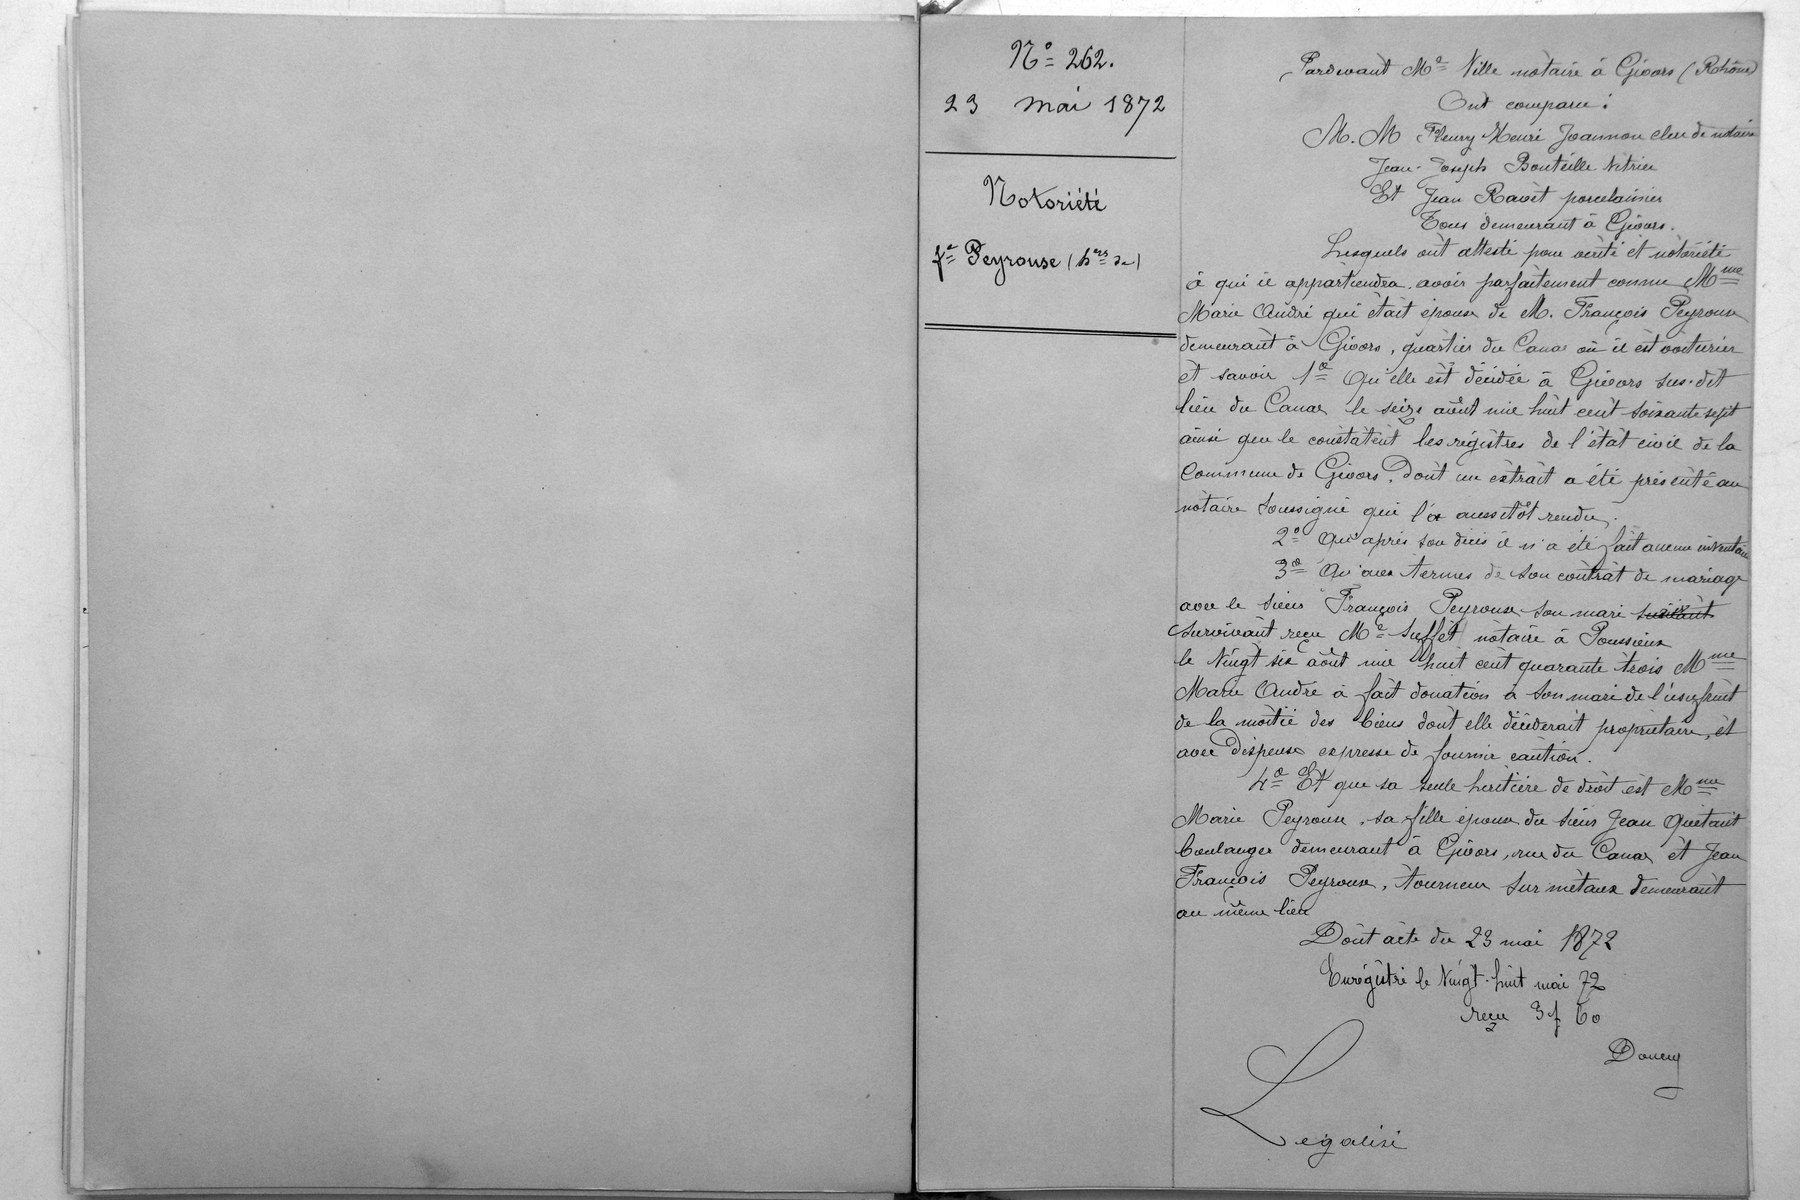 N° 262.
23 mai 1872
Notoriété
fe Peyrouse (hers de)
Pardevant Me Ville notaire à Givors (Rohône)
Ont comparu :
M. M Fleury Henri Joannon clerc de notaire
Jean-Joseph Bouteille Vitrier
Et Jean Ravet porcelainier
Tous demeurant à Givors.
Lesquels ont attesté pour vérité et notoriété
à qui il appartiendra, avoir parfaitement connu Mme
Marie André qui était épouse de M. François Peyrouse
demeurant à Givors, quartier du Canal où il est voiturier
et savoir 1° Qu'elle est décédée à Givors sus-dit
lieu du Canal le seize août mil huit cent soixante sept
ainsi que le constatent les régistres de l'état civil de la
Commune de Givors, Dont un extrait a été présenté au
notaire soussigné qui l'a aussitôt rendu.
2° Qu'après son décès il n'a été fait aucun inventaire
3° Qu'aux termes de son contrat de mariage
avec le sieur François Peyrouse son mari
survivant reçu Me Suffet notaire à Poussieux
le Vingt six août mil huit cent quarante trois Mme
Marie André à fait donation à son mari de l'usufruit
de la moitié des biens dont elle décéderait propriétaire, et
avec Dispense expresse de fournir caution.
4° Et que sa seule héritière de droit est Mme
Marie Peyrouse, sa fille épouse du sieur Jean Quétant
boulanger demeurant à Givors, rue du Canal et Jean
François Peyrouse, tourneur sur métaux demeurant
au même lieu
Dont acte du 23 mai 1872
Enrégistré le Vingt-huit mai 72
reçu 3 f 60
Légalisé